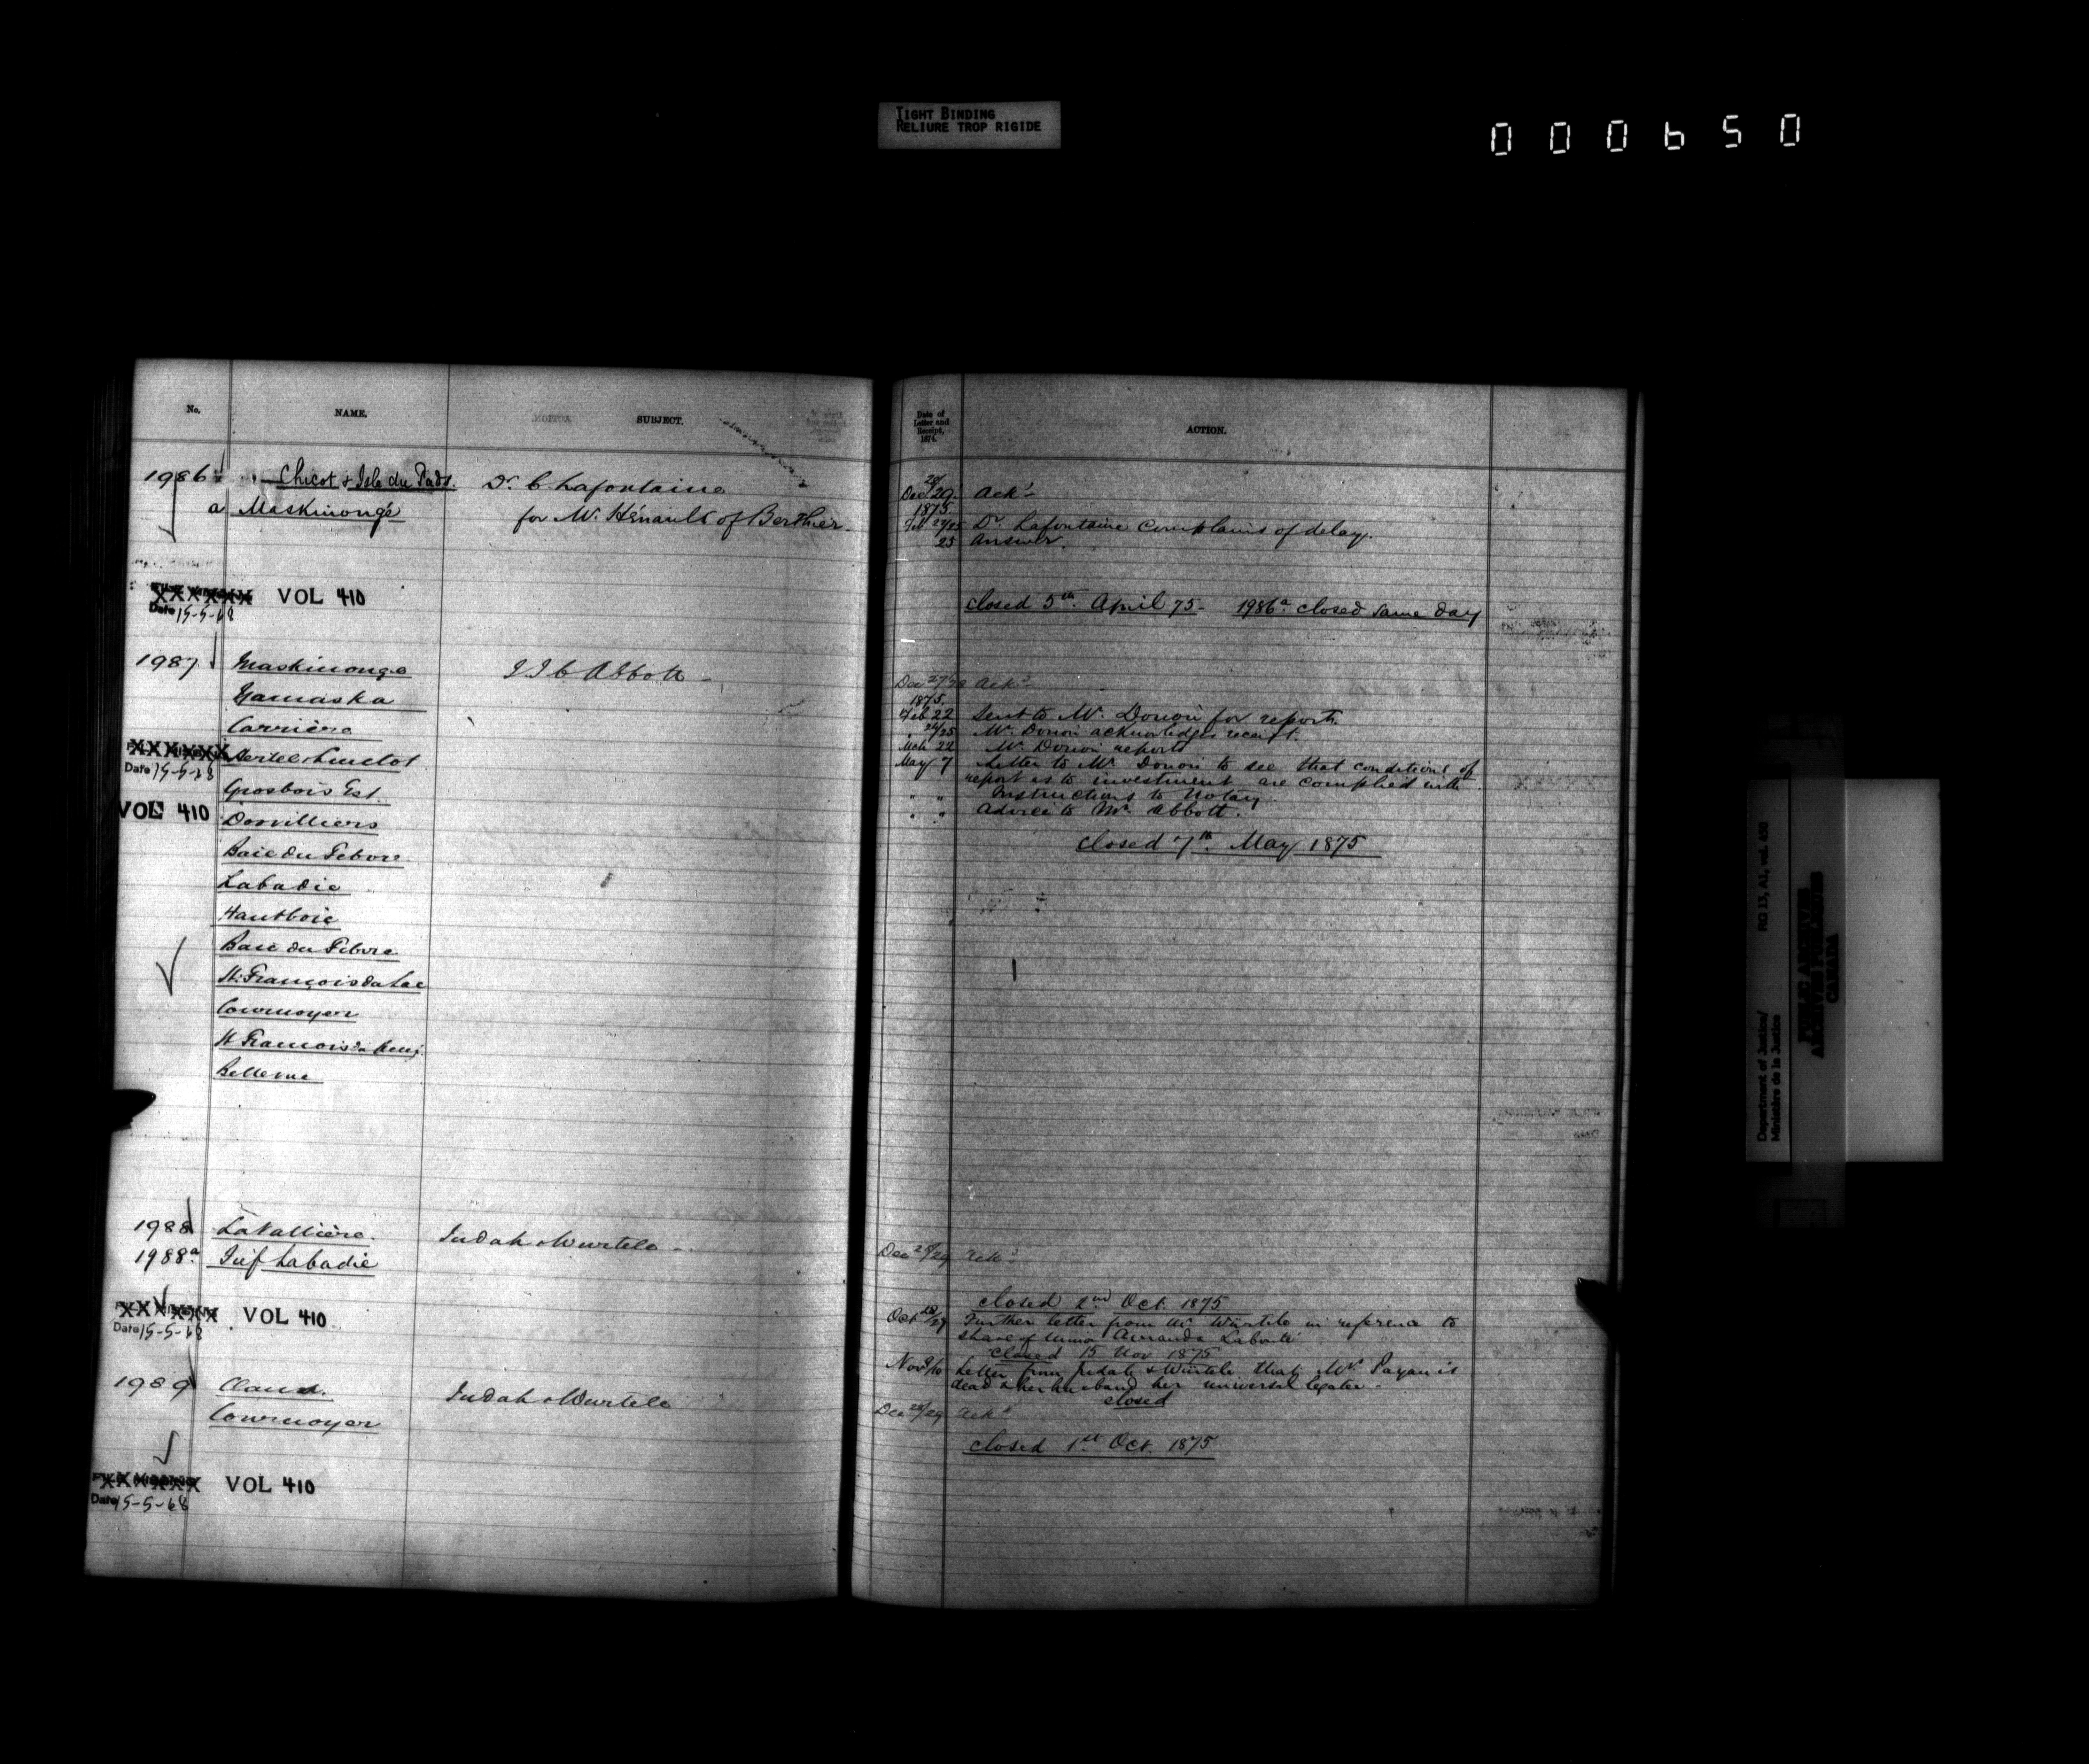 TIGHT BINDING
RELIURE TROP RIGIDE
000650
No. NAME. SUBJECT.
1986 Chicot & Isle du Pads. Dr. C. Lafontaine
a Maskinongé for Mr. Hénault of Berthier.
VOL 410
Date 15-5-68
1987 Maskinonge J J C Abbott
Yamaska
Carrière
Date 15-5-68
Grosbois Est.
VOL 410 Dorvilliers
Baie du Febvre
Labadie
Hautboie
Baie du Febvre
St. François du Lac
Cournoyer
St François
Bellevue
1988 LaVallière. Judah & Wurtele
1988a. Fief Labadie
VOL 410
Date 15-5-68
1989 Judah & Wurtele
Cournoyer
VOL 410
Date 15-5-68
Date of Letter and Receipt, 1874. ACTION.
Dec 28/29. Ackd
1875
Feb 24/25 Dr. Lafontaine complains of delay.
25 Answer.
closed 5th. April 75 - 1986a. closed same day
Dec 27/28 Ackd
1875
Feb 22 Sent to Mr. Dorion for report.
" 24/25 Mr. Dorion acknowledges receipt.
Mch 22 Mr. Dorion reports
May 7 Letter to Mr Dorion to see that conditions of
report as to investment are complied with
" " Instructions to Notary.
" " Advice to Mr. Abbott.
closed 7th. May 1875
Dec 28/29 Ackd
closed 2nd Oct. 1875
Oct 28/29 Further letter from Mr Würtele in reference to
share of Amanda
closed 15 Nov 1875
Nov 9/10 Letter from Judah & Würtele that Mrs Payan is
dead & her husband her universal legatee -
closed
Dec 28/29 Ackd
closed 1st Oct. 1875
Department of Justice/
Ministère de la Justice
RG 13, A1, vol. 430
PUBLIC ARCHIVES
ARCHIVES PUBLIQUES
CANADA